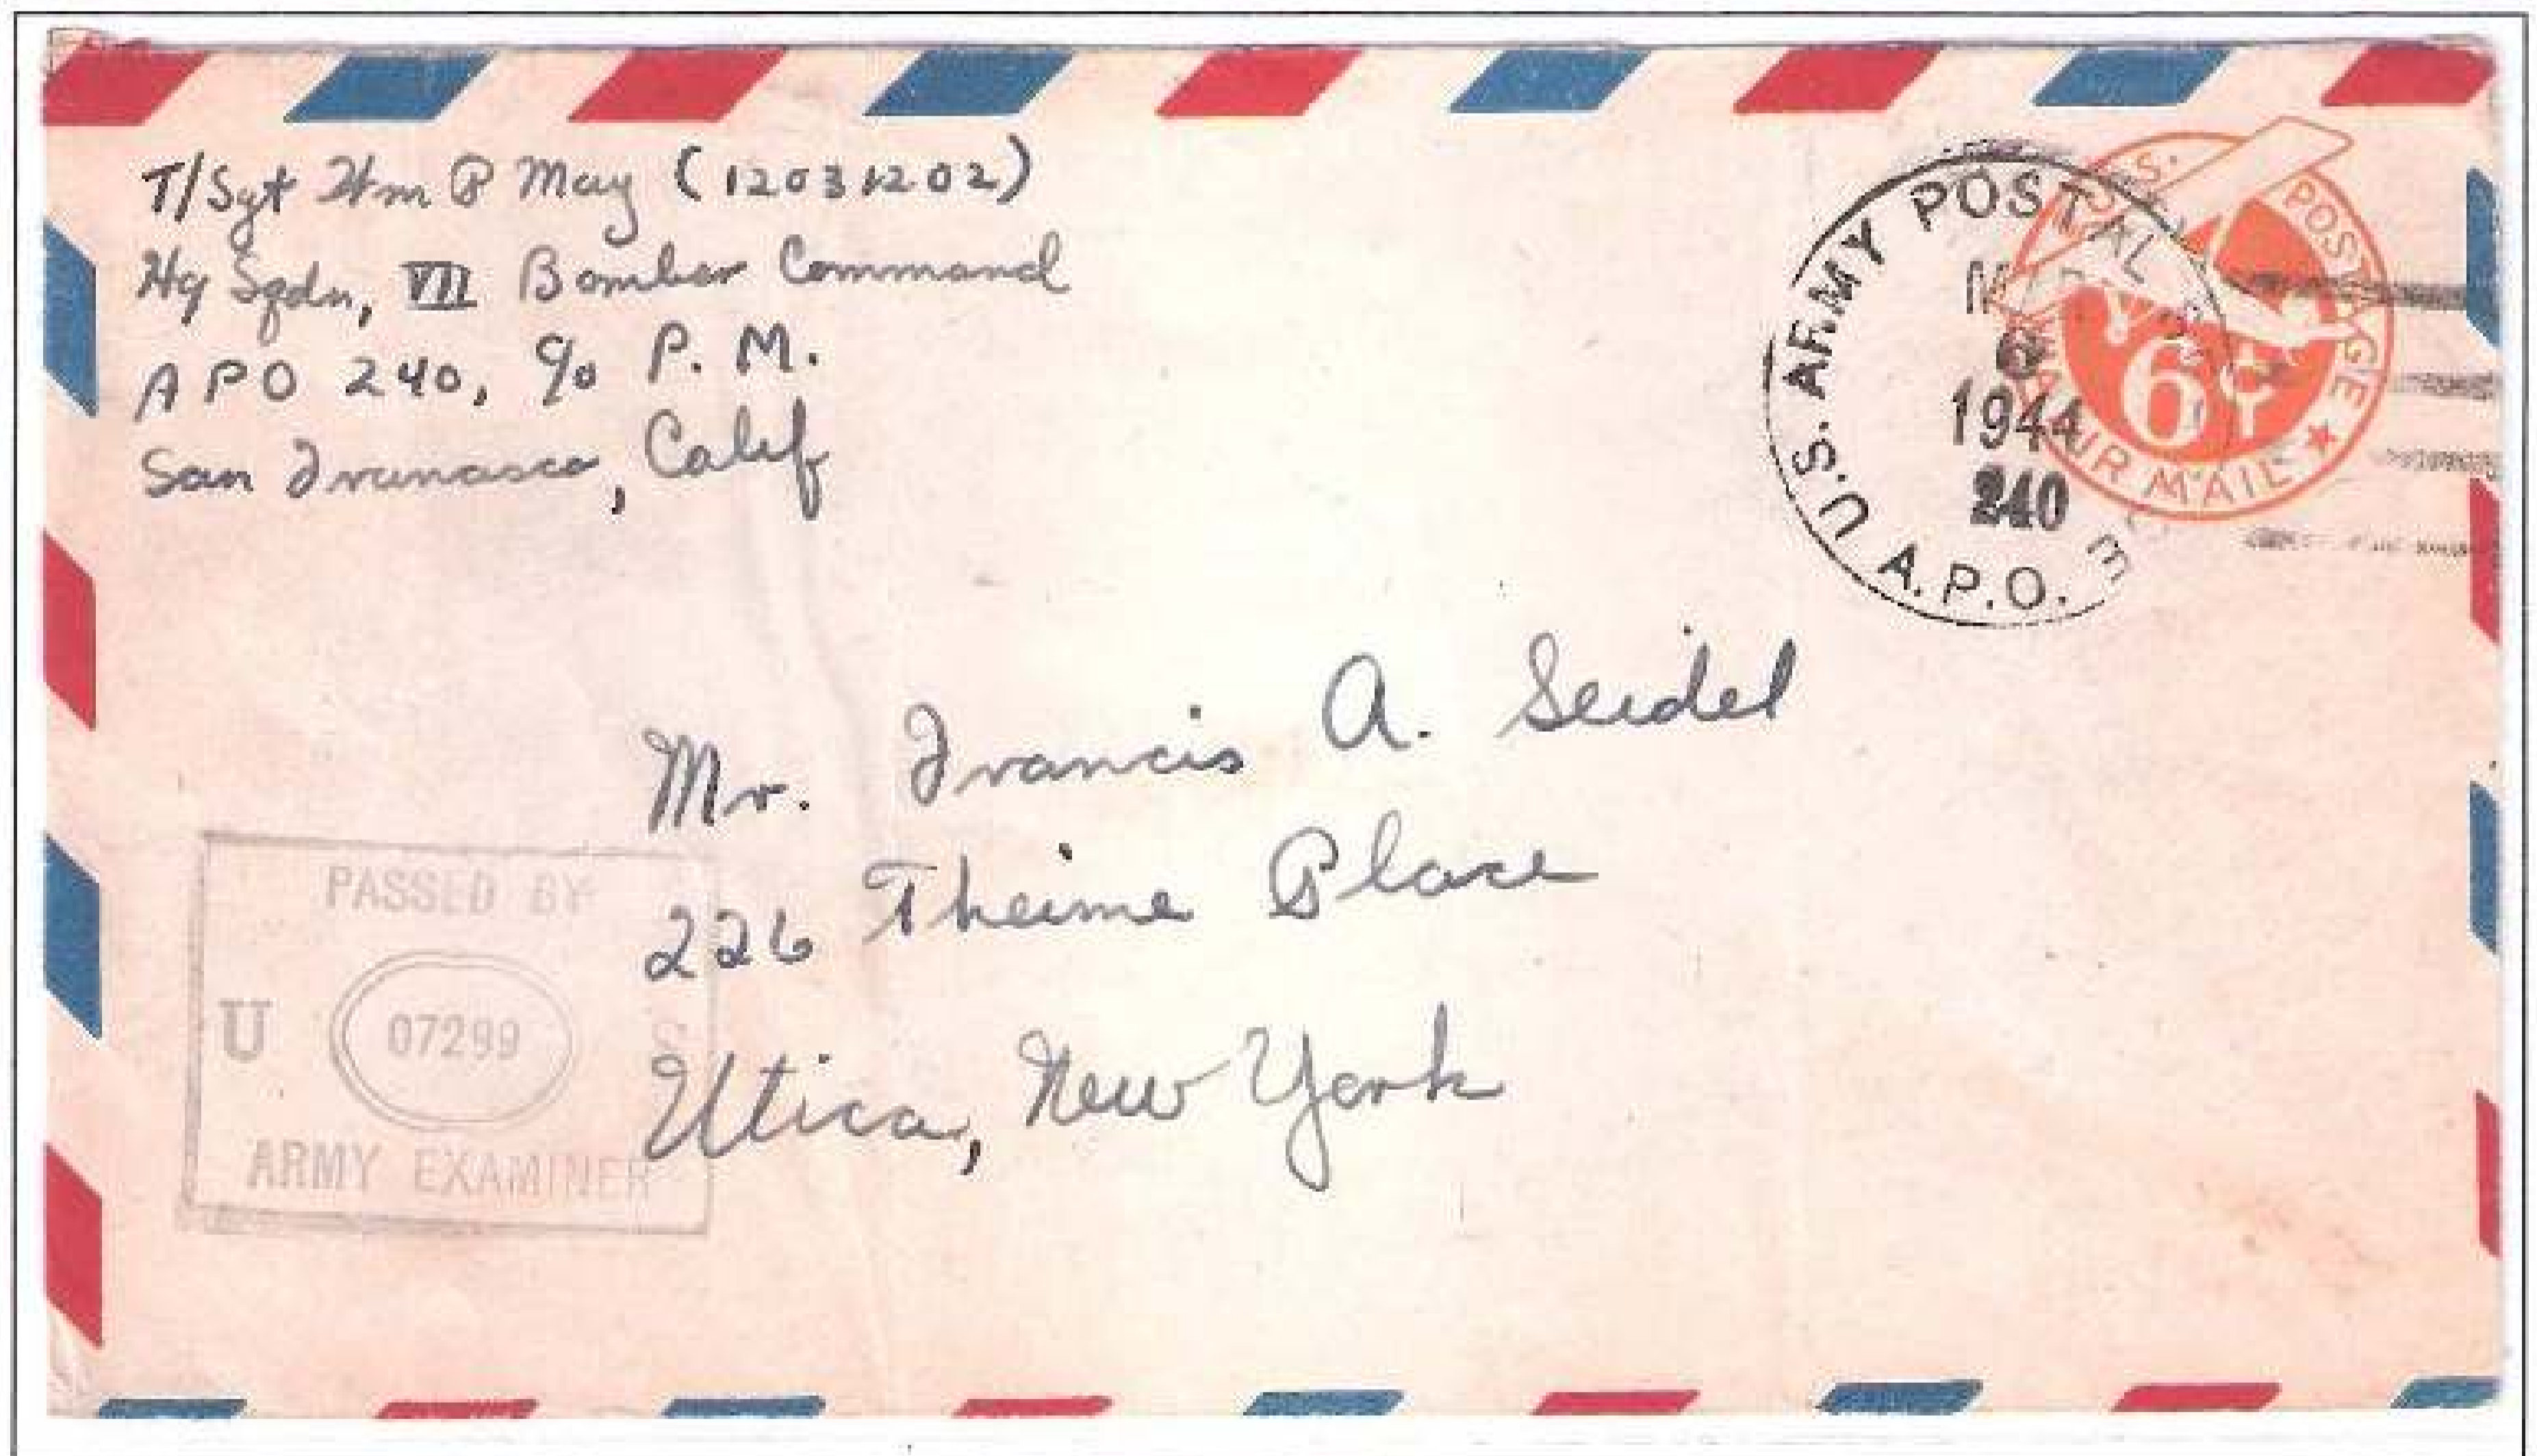 T/Sgt Wm P May (12031202)
Hq Sqdn, VII Bomber Command
APO 240, c/o P. M.
San Francisco, Calif
U.S. ARMY POSTAL
1944
240
A.P.O.
POSTAGE
6¢
AIR MAIL
Mr. Francis A. Seidel
226 Theime Place
Utica, New York
PASSED BY
U 07299 S
ARMY EXAMINER